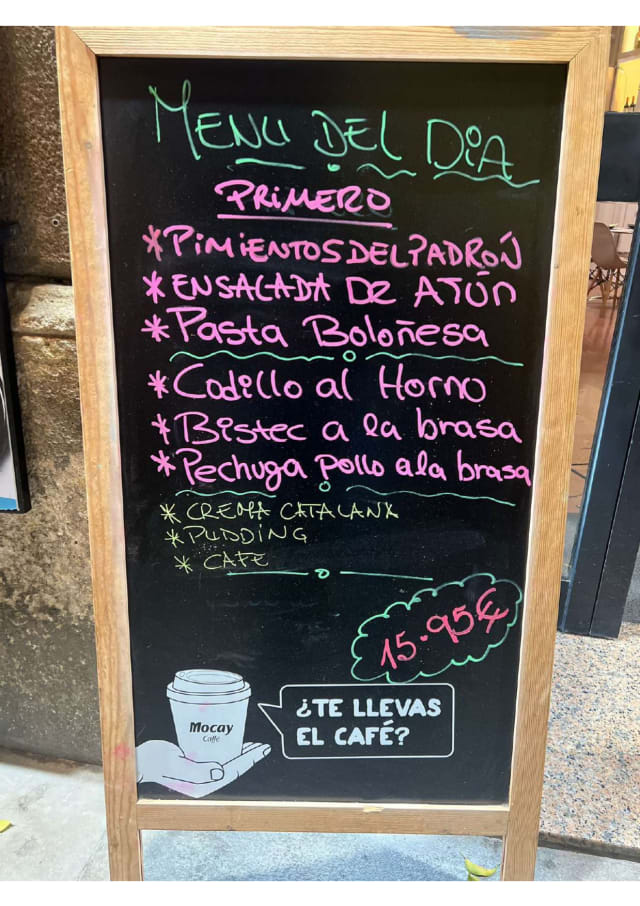 MENU DEL DiA
PRiMERO
* PiMiENTOS DEL PADRÓN
* ENSALADA DE ATÚn
* Pasta Boloñesa
* Codillo al Horno
* Bistec a la brasa
* Pechuga pollo a la brasa
* CREMA CATALANA
* PUDDiNG
* CAFE
15.95€
Mocay
Caffè
¿TE LLEVAS
EL CAFÉ?